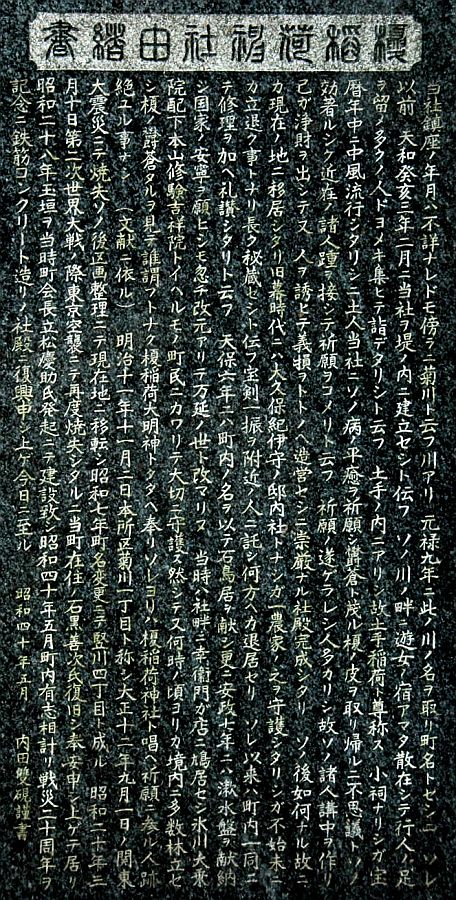 榎稲荷神社由緒書
当社鎮座ノ年月ハ不詳ナレドモ傍ヲニ菊川ト云フ川アリ 元禄九年ニ此ノ川ノ名ヲ取リ町名トセシニ ソレ
以前 天和癸亥三年二月ニ当社ヲ堤ノ内ニ建立セシト伝フ ソノ川ノ畔ニ遊女ノ宿アマタ散在シテ行人ノ足
ヲ留ノ多クノ人ドヨメキ集ヒテ詣デタリシト云フ 土手ノ内ニアリシ故土手稲荷ト尊称ス 小祠ナリシガ宝
暦年中ニ中風流行シタリシニ土人当社ニソノ病ノ平癒ヲ祈願シ欝倉ト茂ル榎ノ皮ヲ取リ帰ルニ不思議トソノ
効著ルシク近在ノ諸人踵ヲ接シテ祈願ヲコメリト云フ 祈願ノ遂ゲラレシ人多カリシ故ソノ諸人講中ヲ作リ
己ガ浄財ヲ出シテ又人ヲ誘ヒテ義損ヲトトノヘ造営セシニ宗厳ナル社殿完成シタリ ソノ後如何ナル故ニ
カ現在ノ地ニ移居シタリ旧幕時代ニハ大久保紀伊守ノ邸内社トナシカ一農家ノ之ヲ守護シタリシガ不始末ニ
カ立退ク事トナリ長ク秘蔵セシト伝フ宝剣一振ヲ附近ノ人ニ託シ何方ヘカ退居セリ ソレ以来ハ町内一同ニ
テ修理ヲ加ヘ礼讃シタリト云フ 天保六年ニハ町内ノ名ヲ以テ石鳥居ヲ献ジ更ニ安政七年ニハ漱水盤ヲ献納
シ国家ノ安寧ヲ願ヒシモ忽チ改元アリテ万延ノ世ト改マリヌ 当時ハ社畔ニ幸衛門ガ店ニ鳩居セシ氷川大乗
院配下本山修験吉祥院トイヘルモノ町民ニカワリテ大切ニ守護ス然シテ又何時ノ頃ヨリカ境内ニ多数林立セ
シ榎ノ欝蒼タルヲ見テ誰謂フトナク榎稲荷大明神トタタヘ奉リソレヨリハ榎稲荷神社ト唱ヘ祈願ニ参ル人跡
絶ユル事ナシ (文献ニ依ル) 明治十一年十一月二日本所区菊川一丁目ト称シ大正十二年九月一日ノ関東
大震災ニテ焼失ソノ後区画整理ニテ現在地ニ移転シ昭和七年町名変更ニテ竪川四丁目ト成ル 昭和二十年三
月十日第二次世界大戦ノ際東京空襲ニテ再度焼失シタルニ当町在住ノ石黒善次氏復旧シ奉安申シ上ゲテ居リ
昭和二十八年玉垣ヲ当時町会長立松慶助氏発起ニテ建設致シ昭和四十年五月町内有志相計リ戦災二十周年ヲ
記念ニ鉄筋コンクリート造リノ社殿ニ復興申シ上ゲ今日ニ至ル 昭和四十年五月 内田雙硯謹書